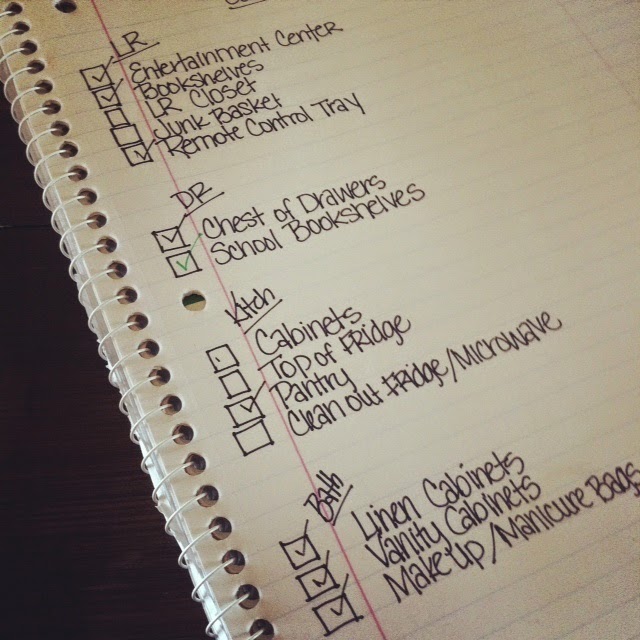 LR
Entertainment Center
Bookshelves
LR Closet
Junk Basket
Remote Control Tray
DR
Chest of Drawers
School Bookshelves
Ktch
Cabinets
Top of Fridge
Pantry
Clean out Fridge/Microwave
Bath
Linen Cabinets
Vanity Cabinets
Makeup/Manicure Bags